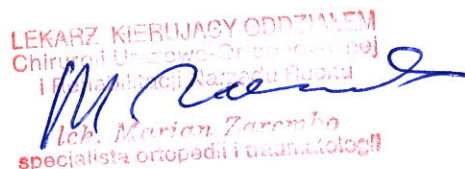 LEKARZ KIERUJĄCY ODDZIAŁEM
Chirurgii Urazowo-Ortopedycznej
i Rehabilitacji Narządu Ruchu
lek. Marian Zarembo
specjalista ortopedii i traumatologii